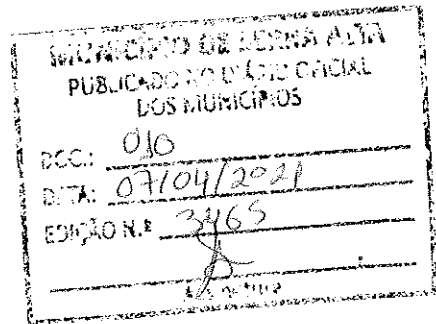 MUNICÍPIO DE SERRA ALTA
PUBLICADO NO DIÁRIO OFICIAL
DOS MUNICÍPIOS
DOC.: 010
DATA: 07/04/2021
EDIÇÃO N.º 3465